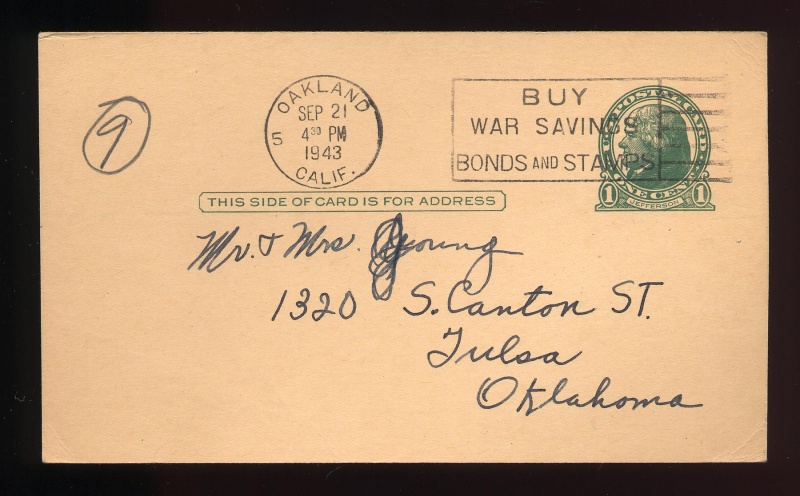 9
OAKLAND
SEP 21
4 30 PM
5
1943
CALIF.
BUY
WAR SAVINGS
BONDS AND STAMPS
U.S. POSTAL CARD
ONE CENT
1 JEFFERSON 1
THIS SIDE OF CARD IS FOR ADDRESS
Mr. & Mrs. Young
1320 S. Canton St.
Tulsa
Oklahoma